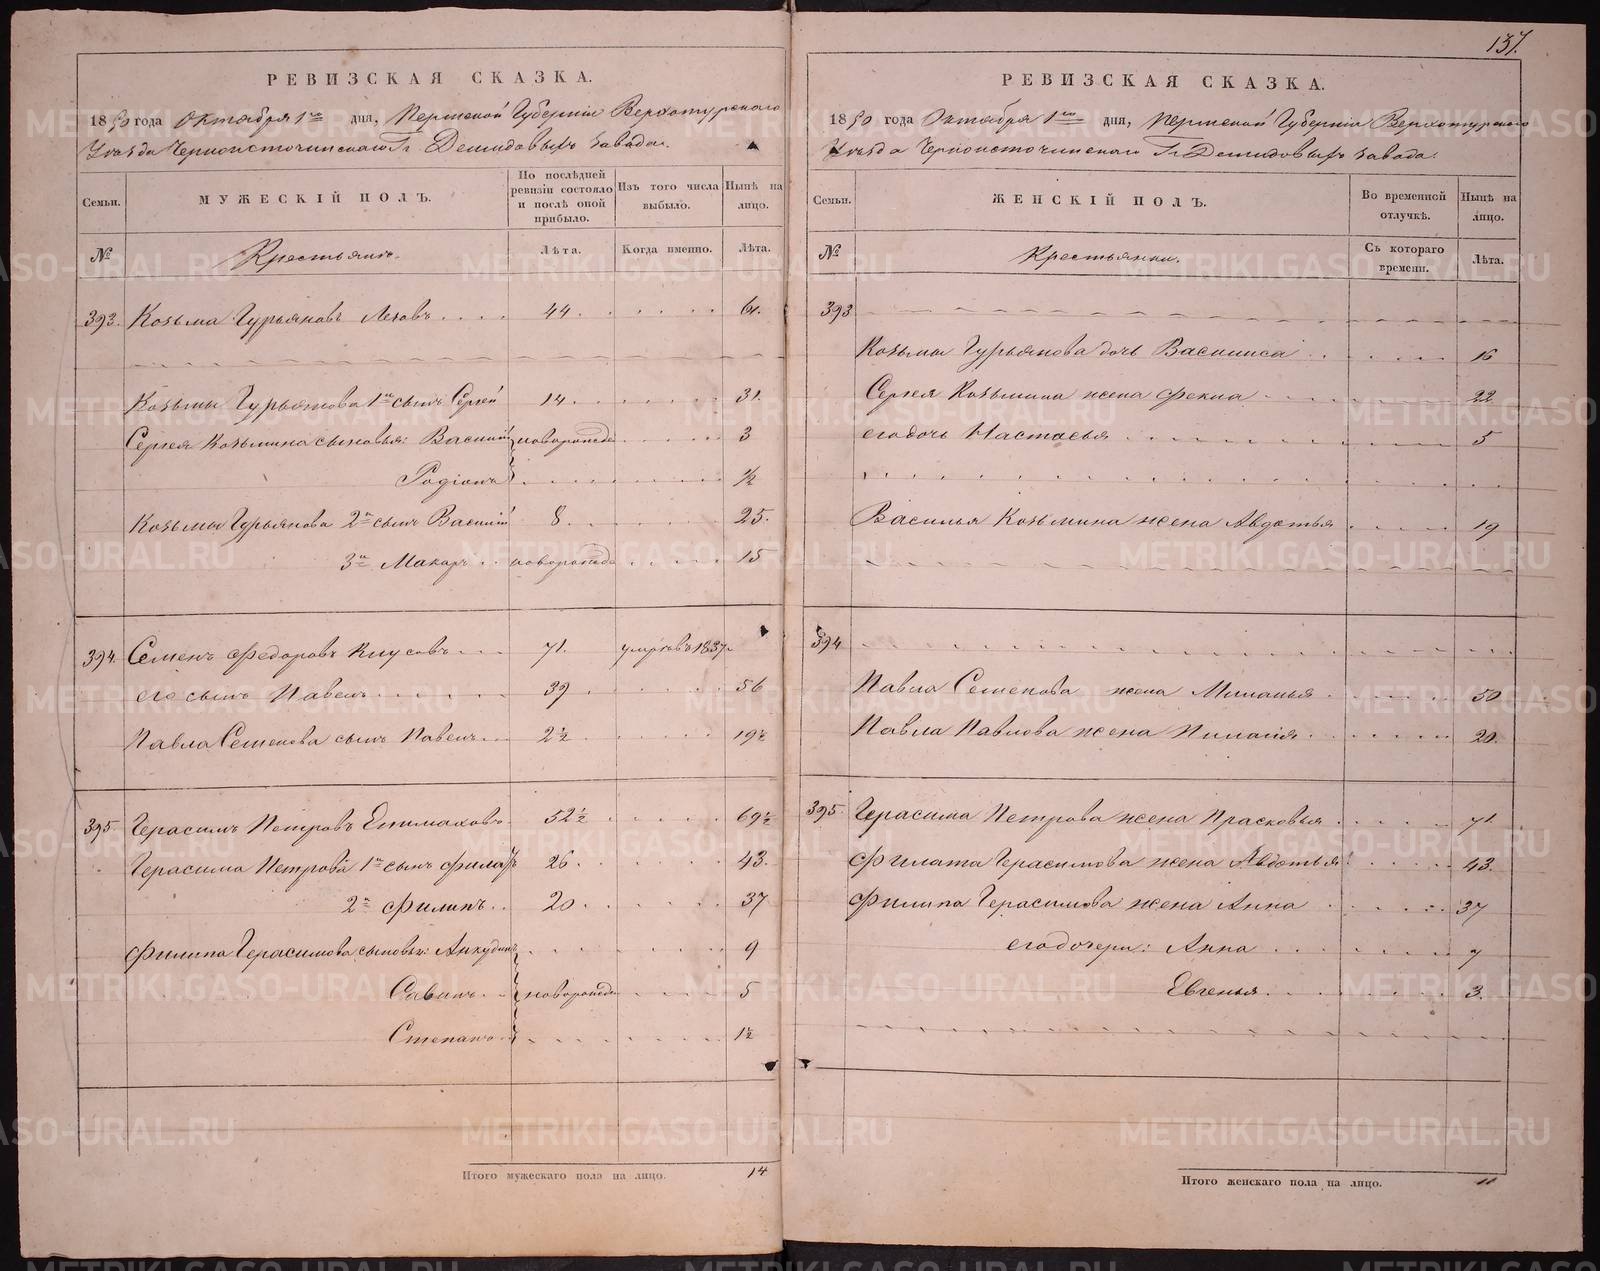 137.
РЕВИЗСКАЯ СКАЗКА.
1850 года Октября 1го дня, Пермской Губерніи Верхотурскаго
Уѣзда Черноисточинскаго Гг Демидовыхъ завода.
Семьи.
МУЖЕСКІЙ ПОЛЪ.
По послѣдней ревизіи состояло и послѣ оной прибыло.
Изъ того числа выбыло.
Нынѣ на лицо.
№
Крестьянъ.
Лѣта.
Когда именно.
Лѣта.
393. Козьма Гурьяновъ 44 61.
Козьмы Гурьянова 1й сынъ Сергѣй 14 31.
Сергѣя Козьмина сыновья: Василій новорожде 3
Родіонъ ½
Козьмы Гурьянова 2й сынъ Василій 8 25.
3й Макаръ новорожде 15
394. Семенъ Федоровъ 71. умръ въ 1837.
его сынъ Павелъ 39 56
Павла Семенова сынъ Павелъ 2½ 19½
395. Герасимъ Петровъ Епимаховъ 52½ 69½
Герасима Петрова 1й сынъ Филатъ 26 43.
2й Филипъ 20 37
Филипа Герасимова сыновья: Анкудинъ 9
Савинъ новорожде 5
Степанъ 1½
Итого мужескаго пола на лицо. 14
РЕВИЗСКАЯ СКАЗКА.
1850 года Октября 1го дня, Пермской Губерніи Верхотурскаго
Уѣзда Черноисточинскаго Гг Демидовыхъ завода.
Семьи.
ЖЕНСКІЙ ПОЛЪ.
Во временной отлучкѣ.
Нынѣ на лицо.
№
Крестьянки.
Съ котораго времени.
Лѣта.
393
Козьмы Гурьянова дочь Василиса 16
Сергѣя Козьмина жена Фекла 22
его дочь Настасья 5
Василья Козьмина жена Авдотья 19
394
Павла Семенова жена Миланья 50
Павла Павлова жена Пилагія 20.
395. Герасима Петрова жена Прасковья 71.
Филата Герасимова жена Авдотья 43.
Филипа Герасимова жена Анна 37
его дочери: Анна 7
Евгенья 3.
Итого женскаго пола на лицо. 11
METRIKI.GASO-URAL.RU